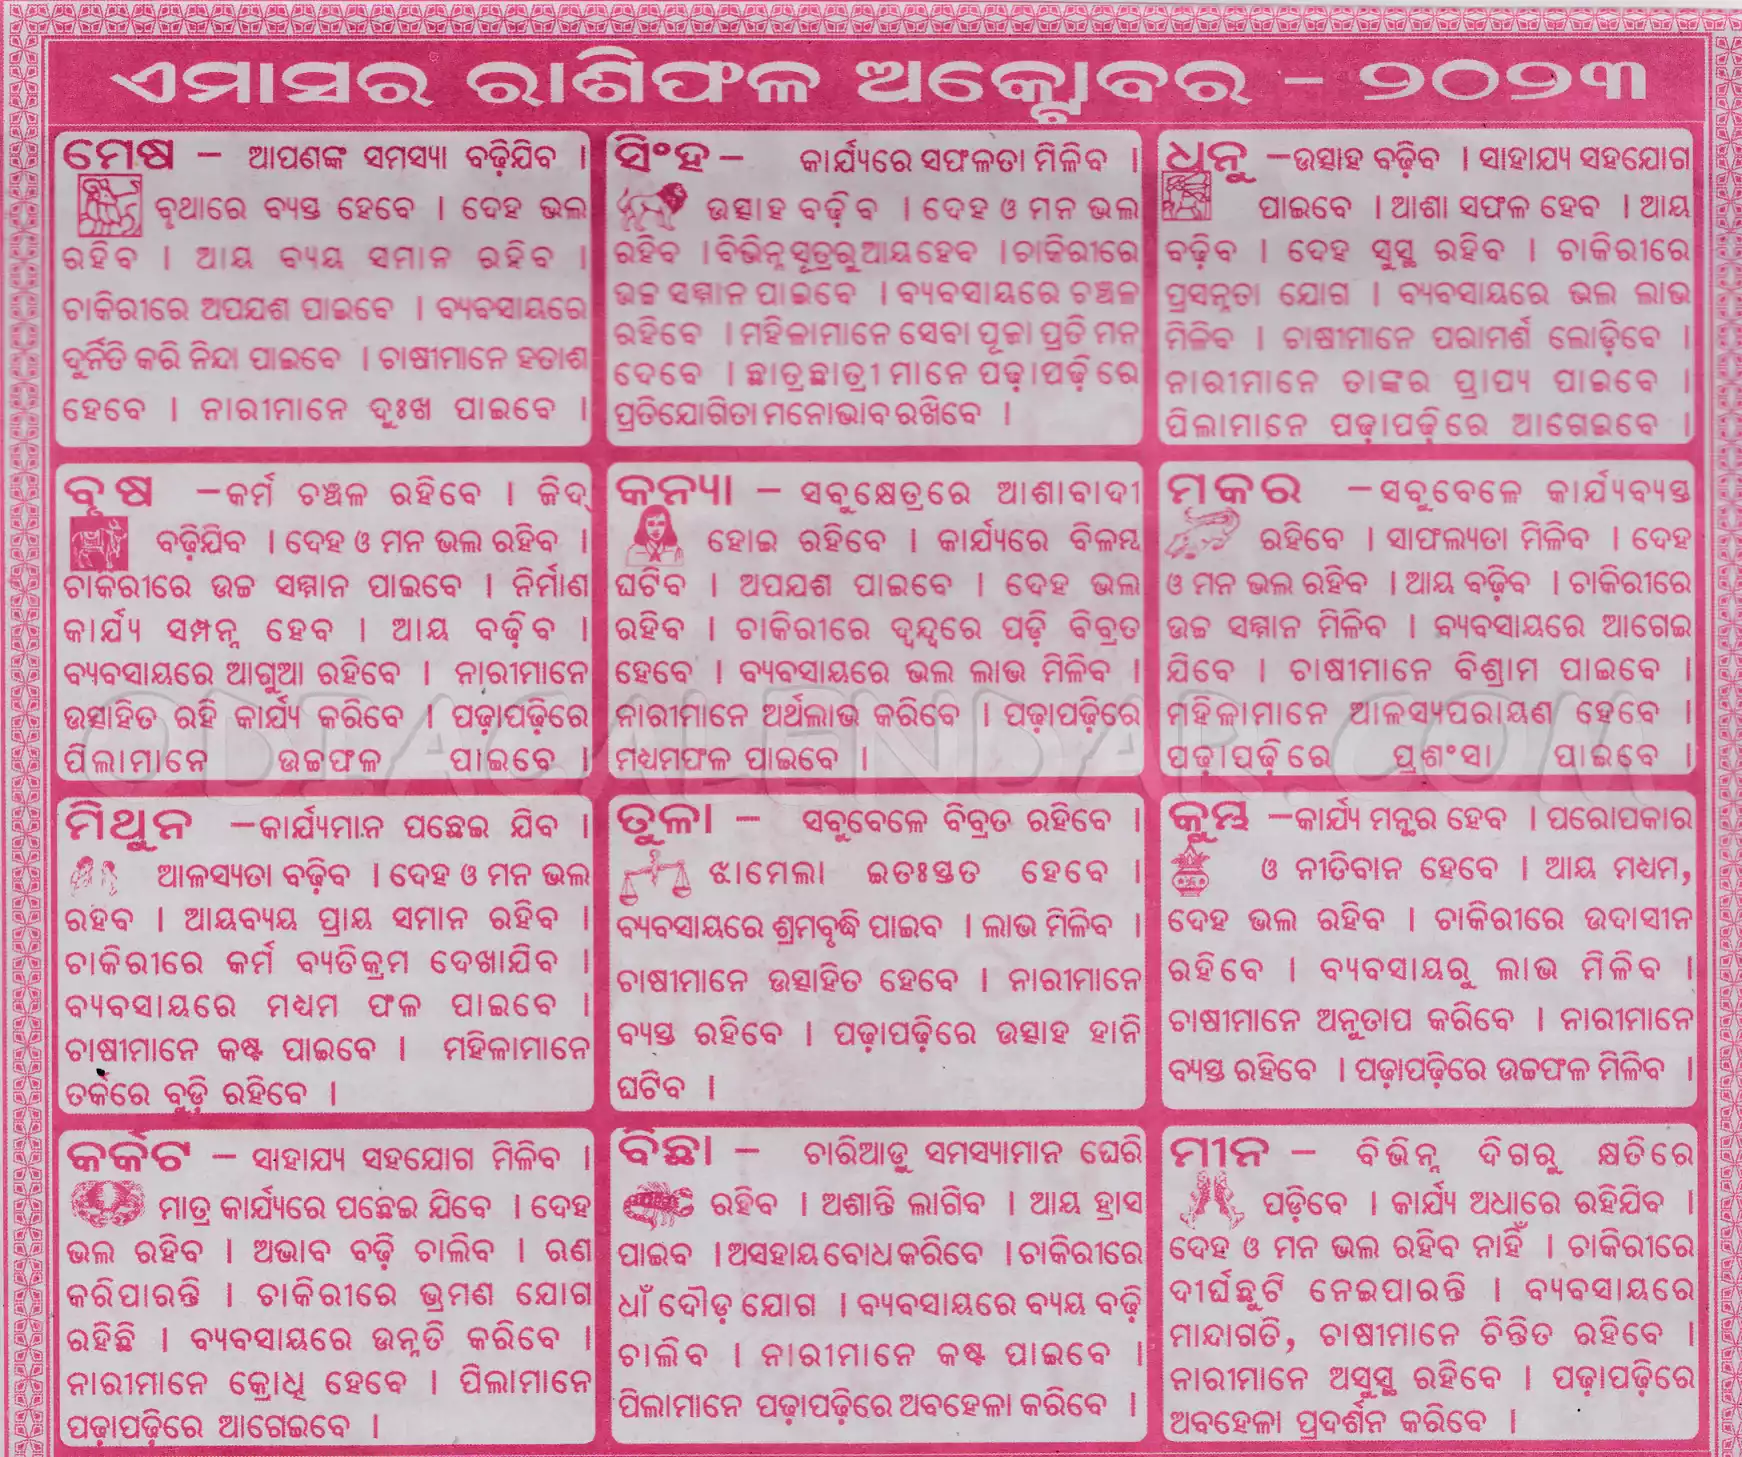 ଏମାସର ରାଶିଫଳ ଅକ୍ଟୋବର - ୨୦୨୩
ମେଷ – ଆପଣଙ୍କ ସମସ୍ୟା ବଢ଼ିଯିବ ।
ବୃଥାରେ ବ୍ୟସ୍ତ ହେବେ । ଦେହ ଭଲ
ରହିବ । ଆୟ ବ୍ୟୟ ସମାନ ରହିବ ।
ଚାକିରୀରେ ଅପଯଶ ପାଇବେ । ବ୍ୟବସାୟରେ
ଦୁର୍ନିତି କରି ନିନ୍ଦା ପାଇବେ । ଚାଷୀମାନେ ହତାଶ
ହେବେ । ନାରୀମାନେ ଦୁଃଖ ପାଇବେ ।
ବୃଷ –କର୍ମ ଚଞ୍ଚଳ ରହିବେ । ଜିଦ୍
ବଢ଼ିଯିବ । ଦେହ ଓ ମନ ଭଲ ରହିବ ।
ଚାକିରୀରେ ଉଚ୍ଚ ସମ୍ମାନ ପାଇବେ । ନିର୍ମାଣ
କାର୍ଯ୍ୟ ସମ୍ପନ୍ନ ହେବ । ଆୟ ବଢ଼ିବ ।
ବ୍ୟବସାୟରେ ଆଗୁଆ ରହିବେ । ନାରୀମାନେ
ଉତ୍ସାହିତ ରହି କାର୍ଯ୍ୟ କରିବେ । ପଢ଼ାପଢ଼ିରେ
ପିଲାମାନେ ଉଚ୍ଚଫଳ ପାଇବେ ।
ମିଥୁନ –କାର୍ଯ୍ୟମାନ ପଛେଇ ଯିବ ।
ଆଳସ୍ୟତା ବଢ଼ିବ । ଦେହ ଓ ମନ ଭଲ
ରହବ । ଆୟବ୍ୟୟ ପ୍ରାୟ ସମାନ ରହିବ ।
ଚାକିରୀରେ କର୍ମ ବ୍ୟତିକ୍ରମ ଦେଖାଯିବ ।
ବ୍ୟବସାୟରେ ମଧ୍ୟମ ଫଳ ପାଇବେ ।
ଚାଷୀମାନେ କଷ୍ଟ ପାଇବେ । ମହିଳାମାନେ
ତର୍କରେ ବୁଡ଼ି ରହିବେ ।
କର୍କଟ – ସାହାଯ୍ୟ ସହଯୋଗ ମିଳିବ ।
ମାତ୍ର କାର୍ଯ୍ୟରେ ପଛେଇ ଯିବେ । ଦେହ
ଭଲ ରହିବ । ଅଭାବ ବଢ଼ି ଚାଲିବ । ଋଣ
କରିପାରନ୍ତି । ଚାକିରୀରେ ଭ୍ରମଣ ଯୋଗ
ରହିଛି । ବ୍ୟବସାୟରେ ଉନ୍ନତି କରିବେ ।
ନାରୀମାନେ କ୍ରୋଧି ହେବେ । ପିଲାମାନେ
ପଢ଼ାପଢ଼ିରେ ଆଗେଇବେ ।
ସିଂହ – କାର୍ଯ୍ୟରେ ସଫଳତା ମିଳିବ ।
ଉତ୍ସାହ ବଢ଼ିବ । ଦେହ ଓ ମନ ଭଲ
ରହିବ । ବିଭିନ୍ନ ସୂତ୍ରରୁ ଆୟ ହେବ । ଚାକିରୀରେ
ଉଚ୍ଚ ସମ୍ମାନ ପାଇବେ । ବ୍ୟବସାୟରେ ଚଞ୍ଚଳ
ରହିବେ । ମହିଳାମାନେ ସେବା ପୂଜା ପ୍ରତି ମନ
ଦେବେ । ଛାତ୍ରଛାତ୍ରୀ ମାନେ ପଢ଼ାପଢ଼ିରେ
ପ୍ରତିଯୋଗିତା ମନୋଭାବ ରଖିବେ ।
କନ୍ୟା – ସବୁକ୍ଷେତ୍ରରେ ଆଶାବାଦୀ
ହୋଇ ରହିବେ । କାର୍ଯ୍ୟରେ ବିଳମ୍ବ
ଘଟିବ । ଅପଯଶ ପାଇବେ । ଦେହ ଭଲ
ରହିବ । ଚାକିରୀରେ ଦ୍ୱନ୍ଦ୍ୱରେ ପଡ଼ି ବିବ୍ରତ
ହେବେ । ବ୍ୟବସାୟରେ ଭଲ ଲାଭ ମିଳିବ ।
ନାରୀମାନେ ଅର୍ଥଲାଭ କରିବେ । ପଢ଼ାପଢ଼ିରେ
ମଧ୍ୟମଫଳ ପାଇବେ ।
ତୁଳା – ସବୁବେଳେ ବିବ୍ରତ ରହିବେ ।
ଝାମେଲା ଇତଃସ୍ତତ ହେବେ ।
ବ୍ୟବସାୟରେ ଶ୍ରମବୃଦ୍ଧି ପାଇବ । ଲାଭ ମିଳିବ ।
ଚାଷୀମାନେ ଉତ୍ସାହିତ ହେବେ । ନାରୀମାନେ
ବ୍ୟସ୍ତ ରହିବେ । ପଢ଼ାପଢ଼ିରେ ଉତ୍ସାହ ହାନି
ଘଟିବ ।
ବିଛା – ଚାରିଆଡୁ ସମସ୍ୟାମାନ ଘେରି
ରହିବ । ଅଶାନ୍ତି ଲାଗିବ । ଆୟ ହ୍ରାସ
ପାଇବ । ଅସହାୟ ବୋଧ କରିବେ । ଚାକିରୀରେ
ଧାଁ ଦୌଡ଼ ଯୋଗ । ବ୍ୟବସାୟରେ ବ୍ୟୟ ବଢ଼ି
ଚାଲିବ । ନାରୀମାନେ କଷ୍ଟ ପାଇବେ ।
ପିଲାମାନେ ପଢ଼ାପଢ଼ିରେ ଅବହେଳା କରିବେ ।
ଧନୁ –ଉତ୍ସାହ ବଢ଼ିବ । ସାହାଯ୍ୟ ସହଯୋଗ
ପାଇବେ । ଆଶା ସଫଳ ହେବ । ଆୟ
ବଢ଼ିବ । ଦେହ ସୁସ୍ଥ ରହିବ । ଚାକିରୀରେ
ପ୍ରସନ୍ନତା ଯୋଗ । ବ୍ୟବସାୟରେ ଭଲ ଲାଭ
ମିଳିବ । ଚାଷୀମାନେ ପରାମର୍ଶ ଲୋଡ଼ିବେ ।
ନାରୀମାନେ ତାଙ୍କର ପ୍ରାପ୍ୟ ପାଇବେ ।
ପିଲାମାନେ ପଢ଼ାପଢ଼ିରେ ଆଗେଇବେ ।
ମକର –ସବୁବେଳେ କାର୍ଯ୍ୟବ୍ୟସ୍ତ
ରହିବେ । ସାଫଲ୍ୟତା ମିଳିବ । ଦେହ
ଓ ମନ ଭଲ ରହିବ । ଆୟ ବଢ଼ିବ । ଚାକିରୀରେ
ଉଚ୍ଚ ସମ୍ମାନ ମିଳିବ । ବ୍ୟବସାୟରେ ଆଗେଇ
ଯିବେ । ଚାଷୀମାନେ ବିଶ୍ରାମ ପାଇବେ ।
ମହିଳାମାନେ ଆଳସ୍ୟପରାୟଣ ହେବେ ।
ପଢ଼ାପଢ଼ିରେ ପ୍ରଶଂସା ପାଇବେ ।
କୁମ୍ଭ –କାର୍ଯ୍ୟ ମନ୍ଥର ହେବ । ପରୋପକାର
ଓ ନୀତିବାନ ହେବେ । ଆୟ ମଧ୍ୟମ,
ଦେହ ଭଲ ରହିବ । ଚାକିରୀରେ ଉଦାସୀନ
ରହିବେ । ବ୍ୟବସାୟରୁ ଲାଭ ମିଳିବ ।
ଚାଷୀମାନେ ଅନୁତାପ କରିବେ । ନାରୀମାନେ
ବ୍ୟସ୍ତ ରହିବେ । ପଢ଼ାପଢ଼ିରେ ଉଚ୍ଚଫଳ ମିଳିବ ।
ମୀନ – ବିଭିନ୍ନ ଦିଗରୁ କ୍ଷତିରେ
ପଡ଼ିବେ । କାର୍ଯ୍ୟ ଅଧାରେ ରହିଯିବ ।
ଦେହ ଓ ମନ ଭଲ ରହିବ ନାହିଁ । ଚାକିରୀରେ
ଦୀର୍ଘଛୁଟି ନେଇପାରନ୍ତି । ବ୍ୟବସାୟରେ
ମାନ୍ଦାଗତି, ଚାଷୀମାନେ ଚିନ୍ତିତ ରହିବେ ।
ନାରୀମାନେ ଅସୁସ୍ଥ ରହିବେ । ପଢ଼ାପଢ଼ିରେ
ଅବହେଳା ପ୍ରଦର୍ଶନ କରିବେ ।
ODIACALENDAR.COM